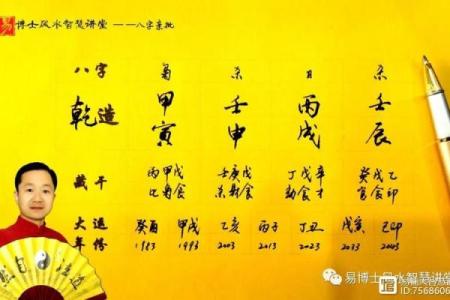 易 博士风水智慧讲堂 ——八字亲批
八字 枭 杀 日 杀
乾造 甲 壬 丙 壬
寅 申 戌 辰
藏干 丙甲戊 壬庚戊 丁戊辛 癸戊乙
比枭食 劫食才 官食印
大运 癸酉 甲戌 乙亥 丙子 丁丑 戊寅 己卯
年份 1983 1993 2003 2013 2023 2033 2043
易博士风水智慧讲堂
ID:7568606